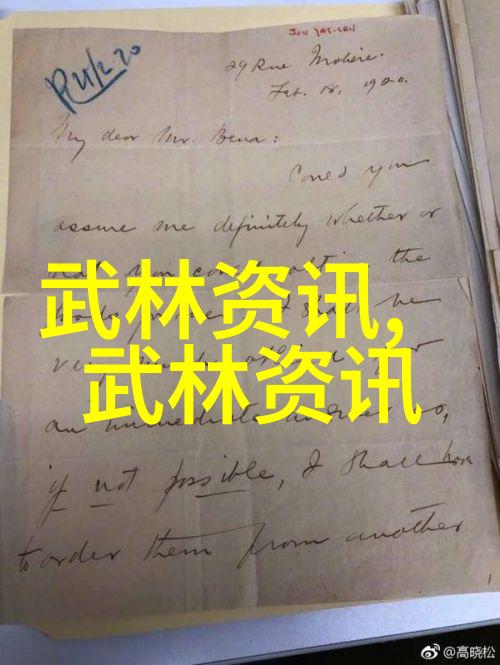 SUN YAT-SEN
R 21/2.20
29 Rue Molière.
Feb. 18, 1920.
My dear Mr. Bena:
Could you
assure me definitely whether or
not you can the
books I shall be
very
武林资讯,
武林资讯
an immediate answer as,
if not possible, I shall have
to order them from another
@高晓松